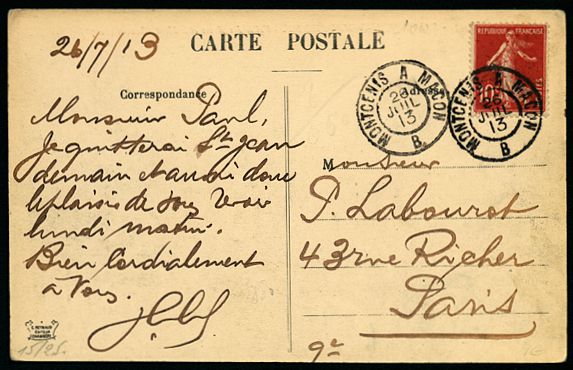 26/7/13
CARTE POSTALE
Correspondance
Adresse
RÉPUBLIQUE FRANÇAISE
10
MONTCENIS A MACON
26
JUIL
13
B
MONTCENIS A MACON
26
JUIL
13
B
Monsieur Paul,
Je quitterai St Jean
demain et aurai donc
le plaisir de vous revoir
lundi matin.
Bien Cordialement
a Vous.
Monsieur
P. Labourot
43 rue Richer
Paris
9e
15/25.